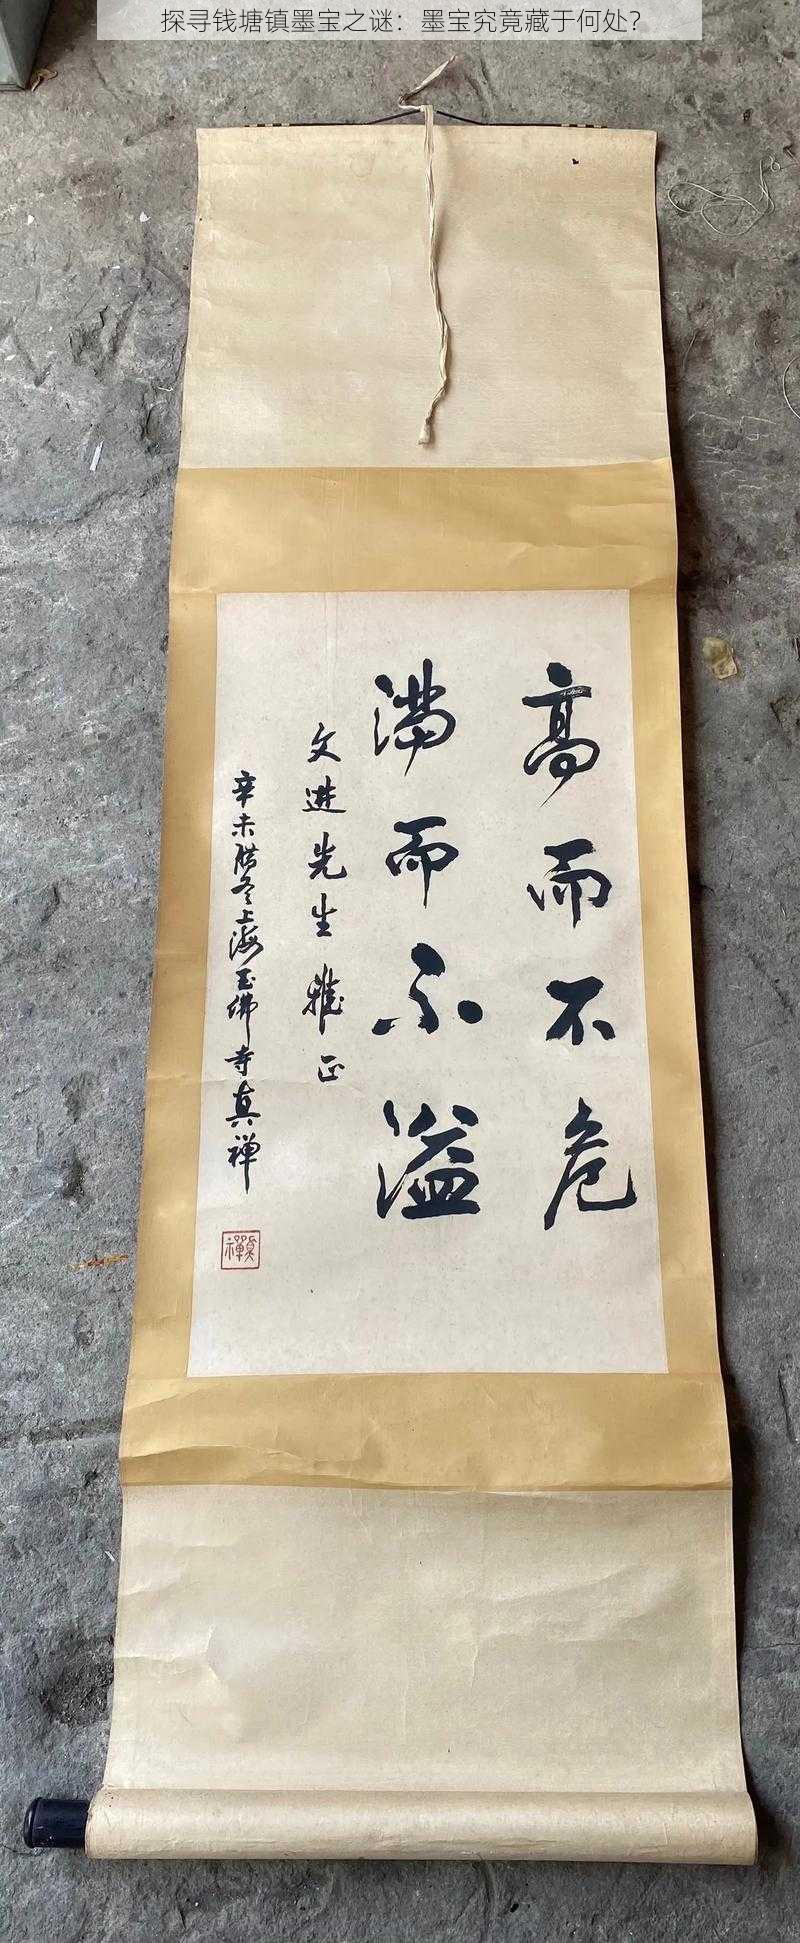 探寻钱塘镇墨宝之谜：墨宝究竟藏于何处？
高而不危
满而不溢
文进先生雅正
辛未腊冬上海玉佛寺真禅
真禅